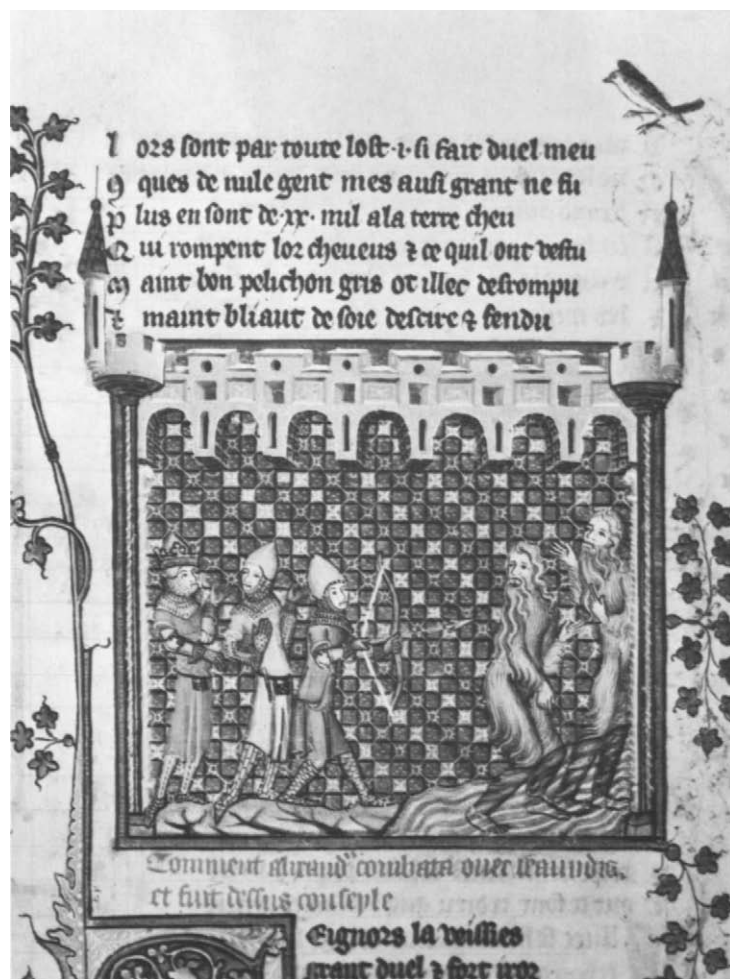 l ors sont par toute lost · i · si fait duel meu
q ques de nule gent mes ausi grant ne fu
p lus en sont de · xx · mil a la terre cheu
q ui rompent lor cheueus ⁊ ce quil ont vestu
m aint bon pelichon gris ot illec desrompu
⁊ maint bliaut de soie descire ⁊ fendu
Comment combata ouec
et fuit dessus
Seignors la veissies
grant duel ⁊ fort